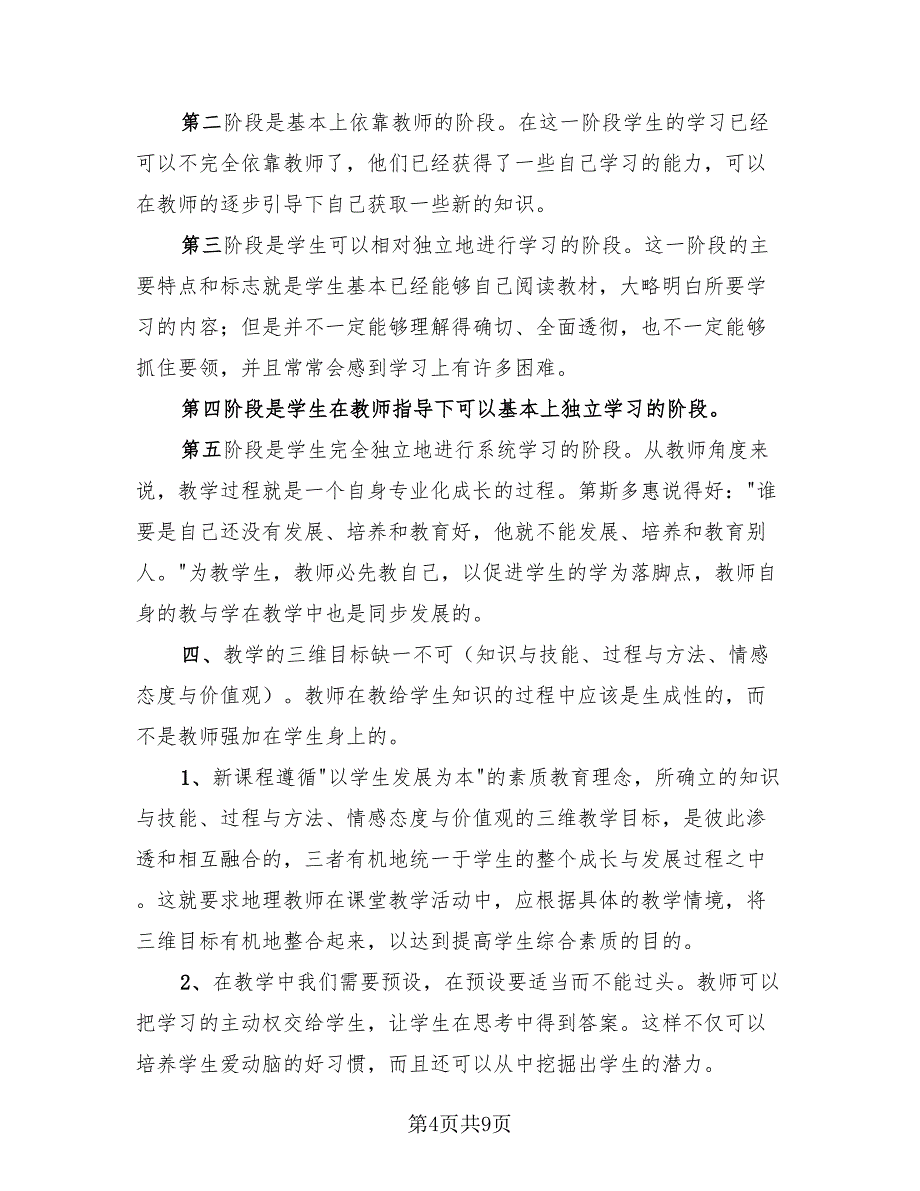 第二阶段是基本上依靠教师的阶段。在这一阶段学生的学习已经
可以不完全依靠教师了，他们已经获得了一些自己学习的能力，可以
在教师的逐步引导下自己获取一些新的知识。
第三阶段是学生可以相对独立地进行学习的阶段。这一阶段的主
要特点和标志就是学生基本已经能够自己阅读教材，大略明白所要学
习的内容；但是并不一定能够理解得确切、全面透彻，也不一定能够
抓住要领，并且常常会感到学习上有许多困难。
第四阶段是学生在教师指导下可以基本上独立学习的阶段。
第五阶段是学生完全独立地进行系统学习的阶段。从教师角度来
说，教学过程就是一个自身专业化成长的过程。第斯多惠说得好："谁
要是自己还没有发展、培养和教育好，他就不能发展、培养和教育别
人。"为教学生，教师必先教自己，以促进学生的学为落脚点，教师自
身的教与学在教学中也是同步发展的。
四、教学的三维目标缺一不可（知识与技能、过程与方法、情感
态度与价值观）。教师在教给学生知识的过程中应该是生成性的，而
不是教师强加在学生身上的。
1、新课程遵循"以学生发展为本"的素质教育理念，所确立的知识
与技能、过程与方法、情感态度与价值观的三维教学目标，是彼此渗
透和相互融合的，三者有机地统一于学生的整个成长与发展过程之中
。这就要求地理教师在课堂教学活动中，应根据具体的教学情境，将
三维目标有机地整合起来，以达到提高学生综合素质的目的。
2、在教学中我们需要预设，在预设要适当而不能过头。教师可以
把学习的主动权交给学生，让学生在思考中得到答案。这样不仅可以
培养学生爱动脑的好习惯，而且还可以从中挖掘出学生的潜力。
第4页共9页